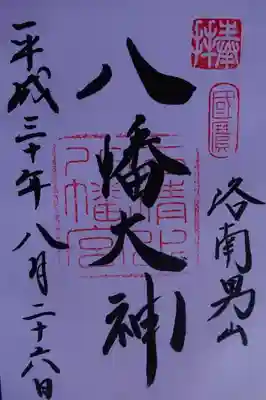 奉拝
國寶
洛南男山
八幡大神
石清水八幡宮
平成三十年八月二十六日